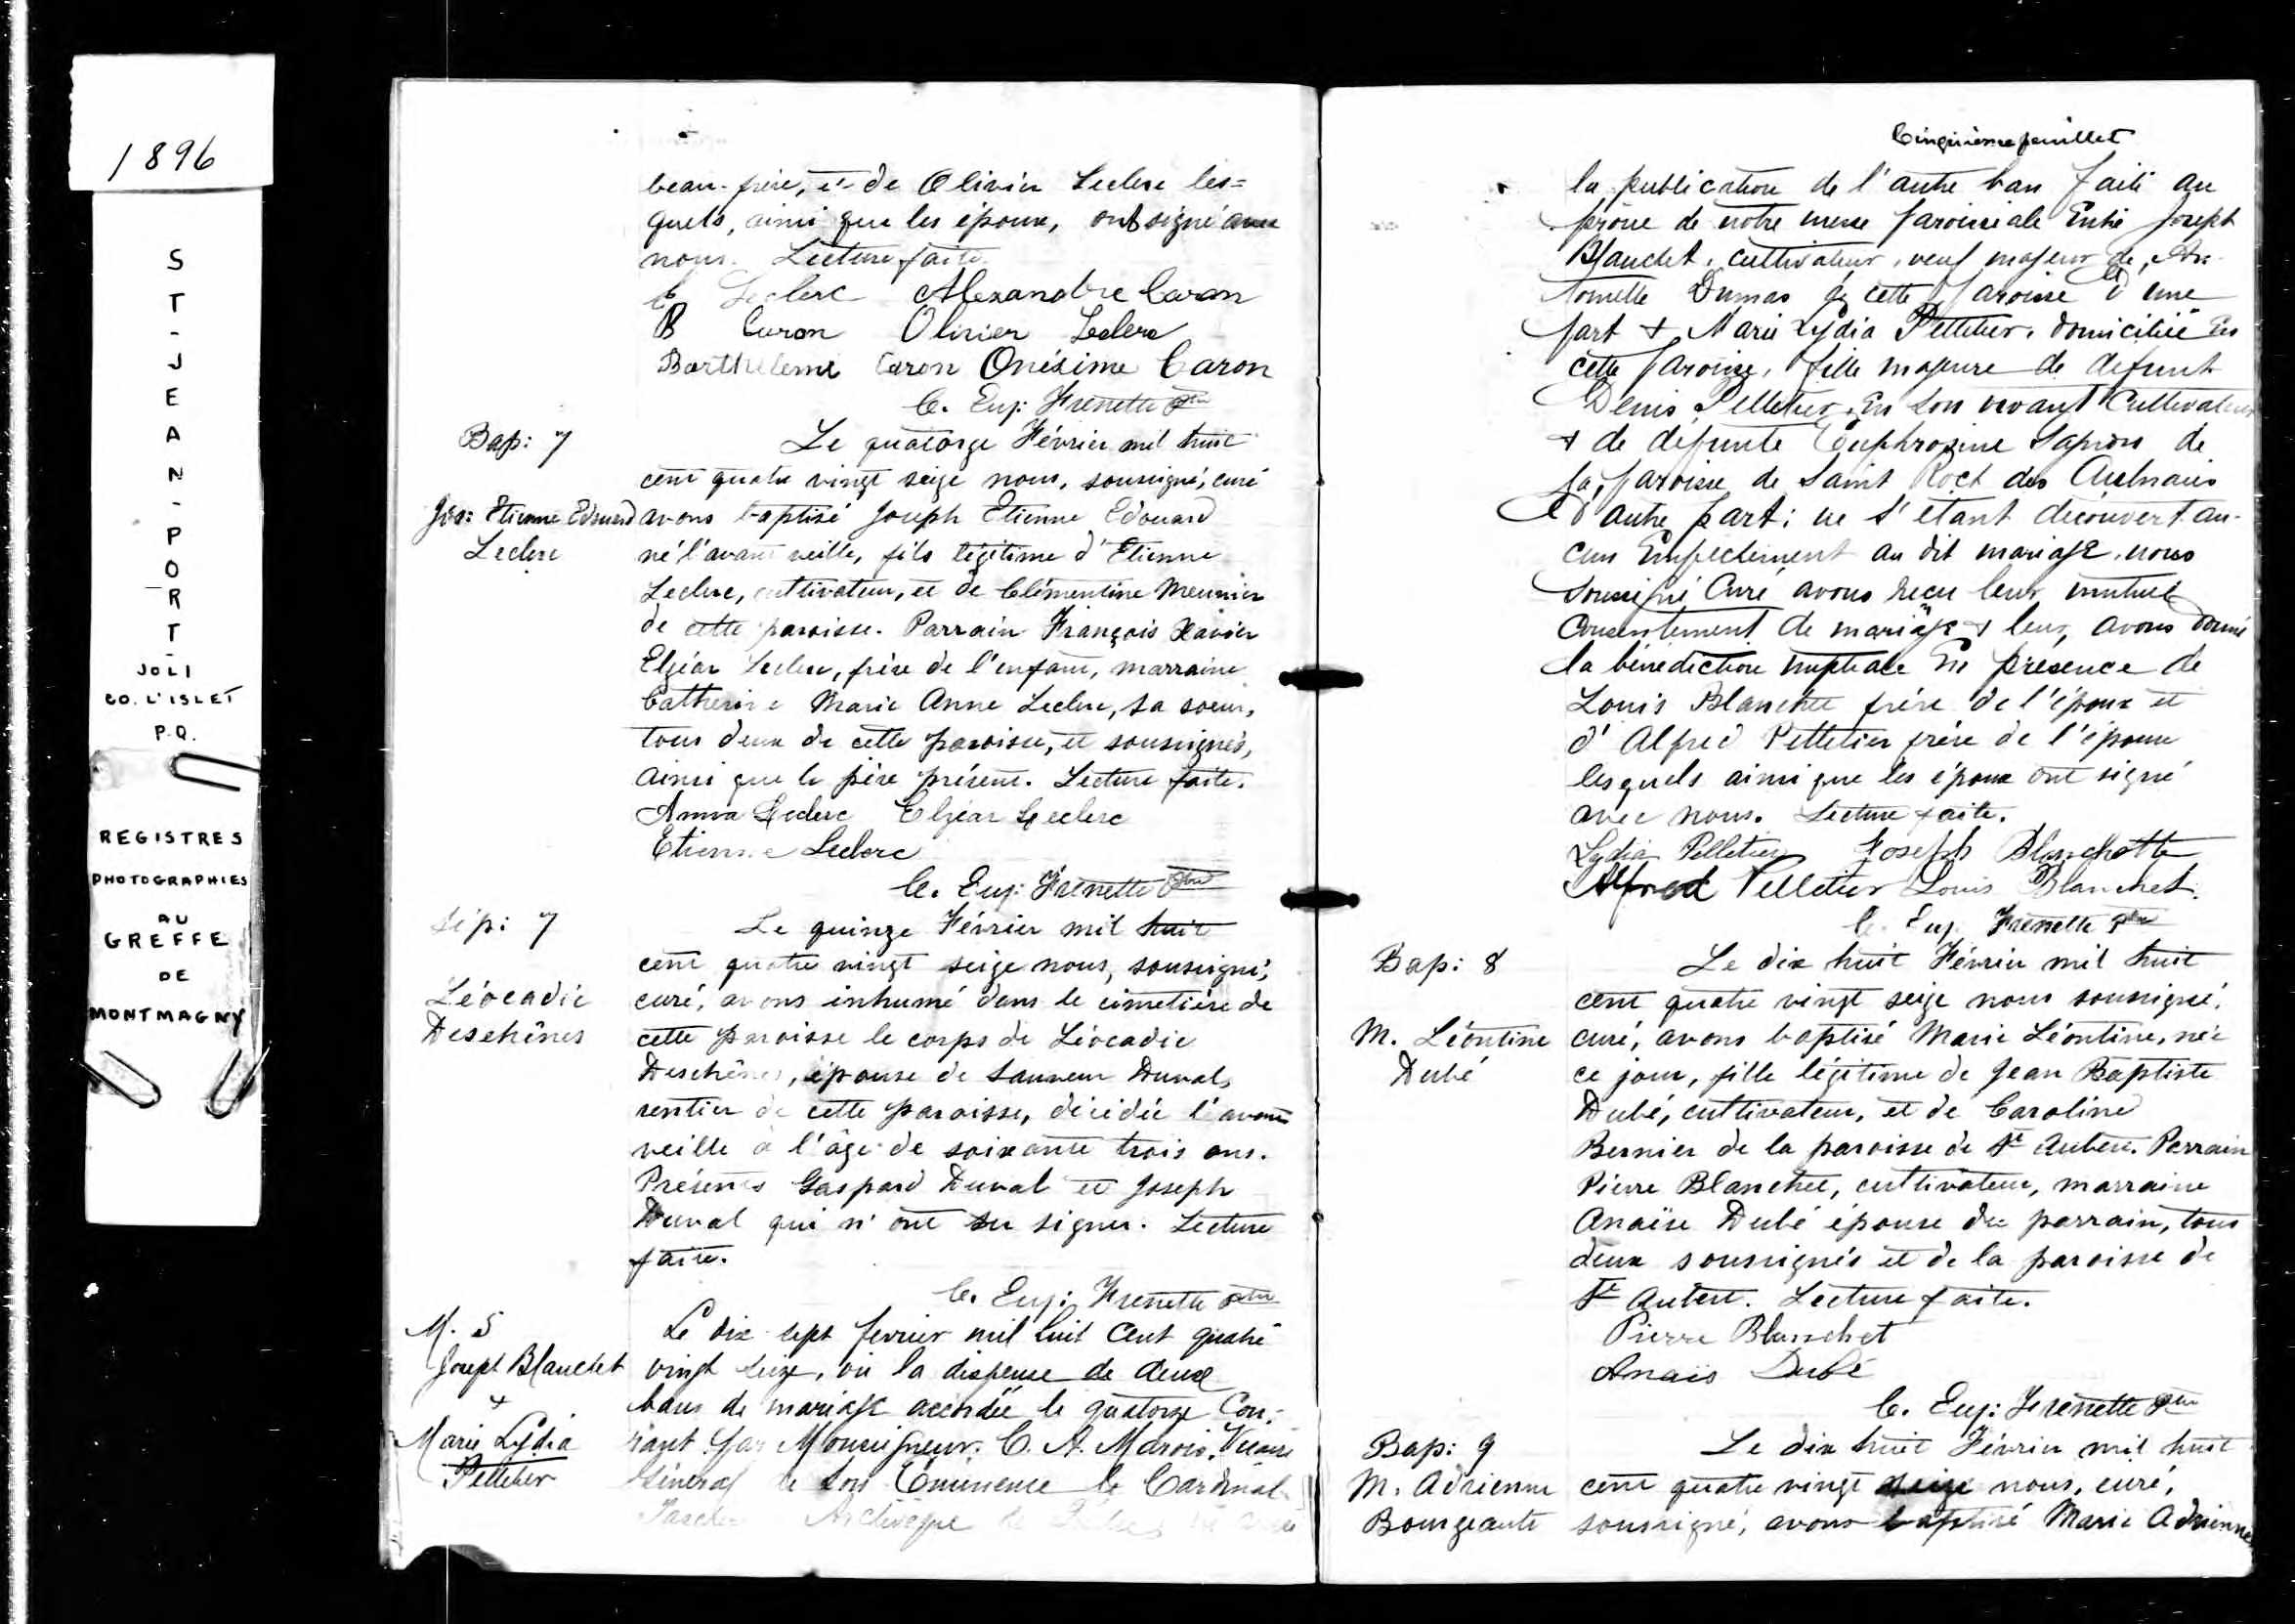 1896
ST-JEAN-PORT-
JOLI
CO. L'ISLET
P.Q.
REGISTRES
PHOTOGRAPHIES
AU
GREFFE
DE
MONTMAGNY
beau-frère, et de Olivier Leclerc les=
quels, ainsi que les époux, ont signé avec
nous. Lecture faite.
E Leclerc Alexandre Caron
B Caron Olivier Leclerc
Barthelemi Caron Onésime Caron
C. Eug: Frenette Ptre
Bap: 7
Jos: Etienne Edouard
Leclerc
Le quatorze Février mil huit
cent quatre vingt seize nous, soussigné, curé
avons baptisé Joseph Etienne Edouard
né l'avant veille, fils légitime d'Etienne
Leclerc, cultivateur, et de Clémentine Meunier
de cette paroisse. Parrain François Xavier
Elzéar Leclerc, frère de l'enfant, marraine
Catherine Marie Anne Leclerc, sa soeur,
tous deux de cette paroisse, et soussignés,
ainsi que le père présent. Lecture faite.
Anna Leclerc Elzéar Leclerc
Etienne Leclerc
C. Eug: Frenette Ptre
Sép: 7
Léocadie
Deschênes
Le quinze Février mil huit
cent quatre vingt seize nous, soussigné,
curé, avons inhumé dans le cimetière de
cette paroisse le corps de Léocadie
Deschênes, épouse de Sauveur Duval,
rentier de cette paroisse, décédée l'avant
veille à l'âge de soixante trois ans.
Présents Gaspard Duval et Joseph
Duval qui n'ont su signer. Lecture
faite.
C. Eug: Frenette Ptre
M. 5
Joseph Blanchet
+
Marie Lydia
Pelletier
Le dix-sept fevrier mil huit cent quatre
vingt seize, vu la dispense de deux
bans de mariage accordée le quatorze Cou-
rant par Monseigneur C. A. Marois, Vicaire
Général de Son Eminence le Cardinal
Archevêque de
Cinquième feuillet
la publication de l'autre ban faite au
prône de notre messe paroissiale Entre Joseph
Blanchet, cultivateur, veuf majeur de, An-
tomette Dumas de cette Paroisse d'une
part + Marie Lydia Pelletier, domiciliée En
cette Paroisse, fille majeure de defunt
Denis Pelletier, En Son vivant Cultivateur
+ de défunte Euphrosine Sapion de
la, paroisse de Saint Roch des Aulnaies
d'autre part; ne s'étant découvert au-
cun Empêchement au dit mariage, nous
soussigné Curé avons reçu leur mutuel
Consentement de mariage + leur avons donné
la bénediction nuptiale En présence de
Louis Blanchet frère de l'époux et
d'Alfred Pelletier frère de l'épouse
lesquels ainsi que les époux ont signé
avec nous. Lecture faite.
Lydia Pelletier Joseph Blanchette
Alfred Pelletier Louis Blanchet.
C. Eug. Frenette Ptre
Bap: 8
M. Léontine
Dubé
Le dix huit Février mil huit
cent quatre vingt seize nous soussigné,
curé, avons baptisé Marie Léontine, née
ce jour, fille légitime de Jean Baptiste
Dubé, cultivateur, et de Caroline
Bernier de la paroisse de St Aubert. Parrain
Pierre Blanchet, cultivateur, marraine
Anaïse Dubé épouse du parrain, tous
deux soussignés et de la paroisse de
St Aubert. Lecture faite.
Pierre Blanchet
Anaïs Dubé
C. Eug: Frenette Ptre
Bap: 9
M. Adrienne
Bourgeault
Le dix huit Février mil huit
cent quatre vingt seize nous, curé,
soussigné, avons baptisé Marie Adrienne